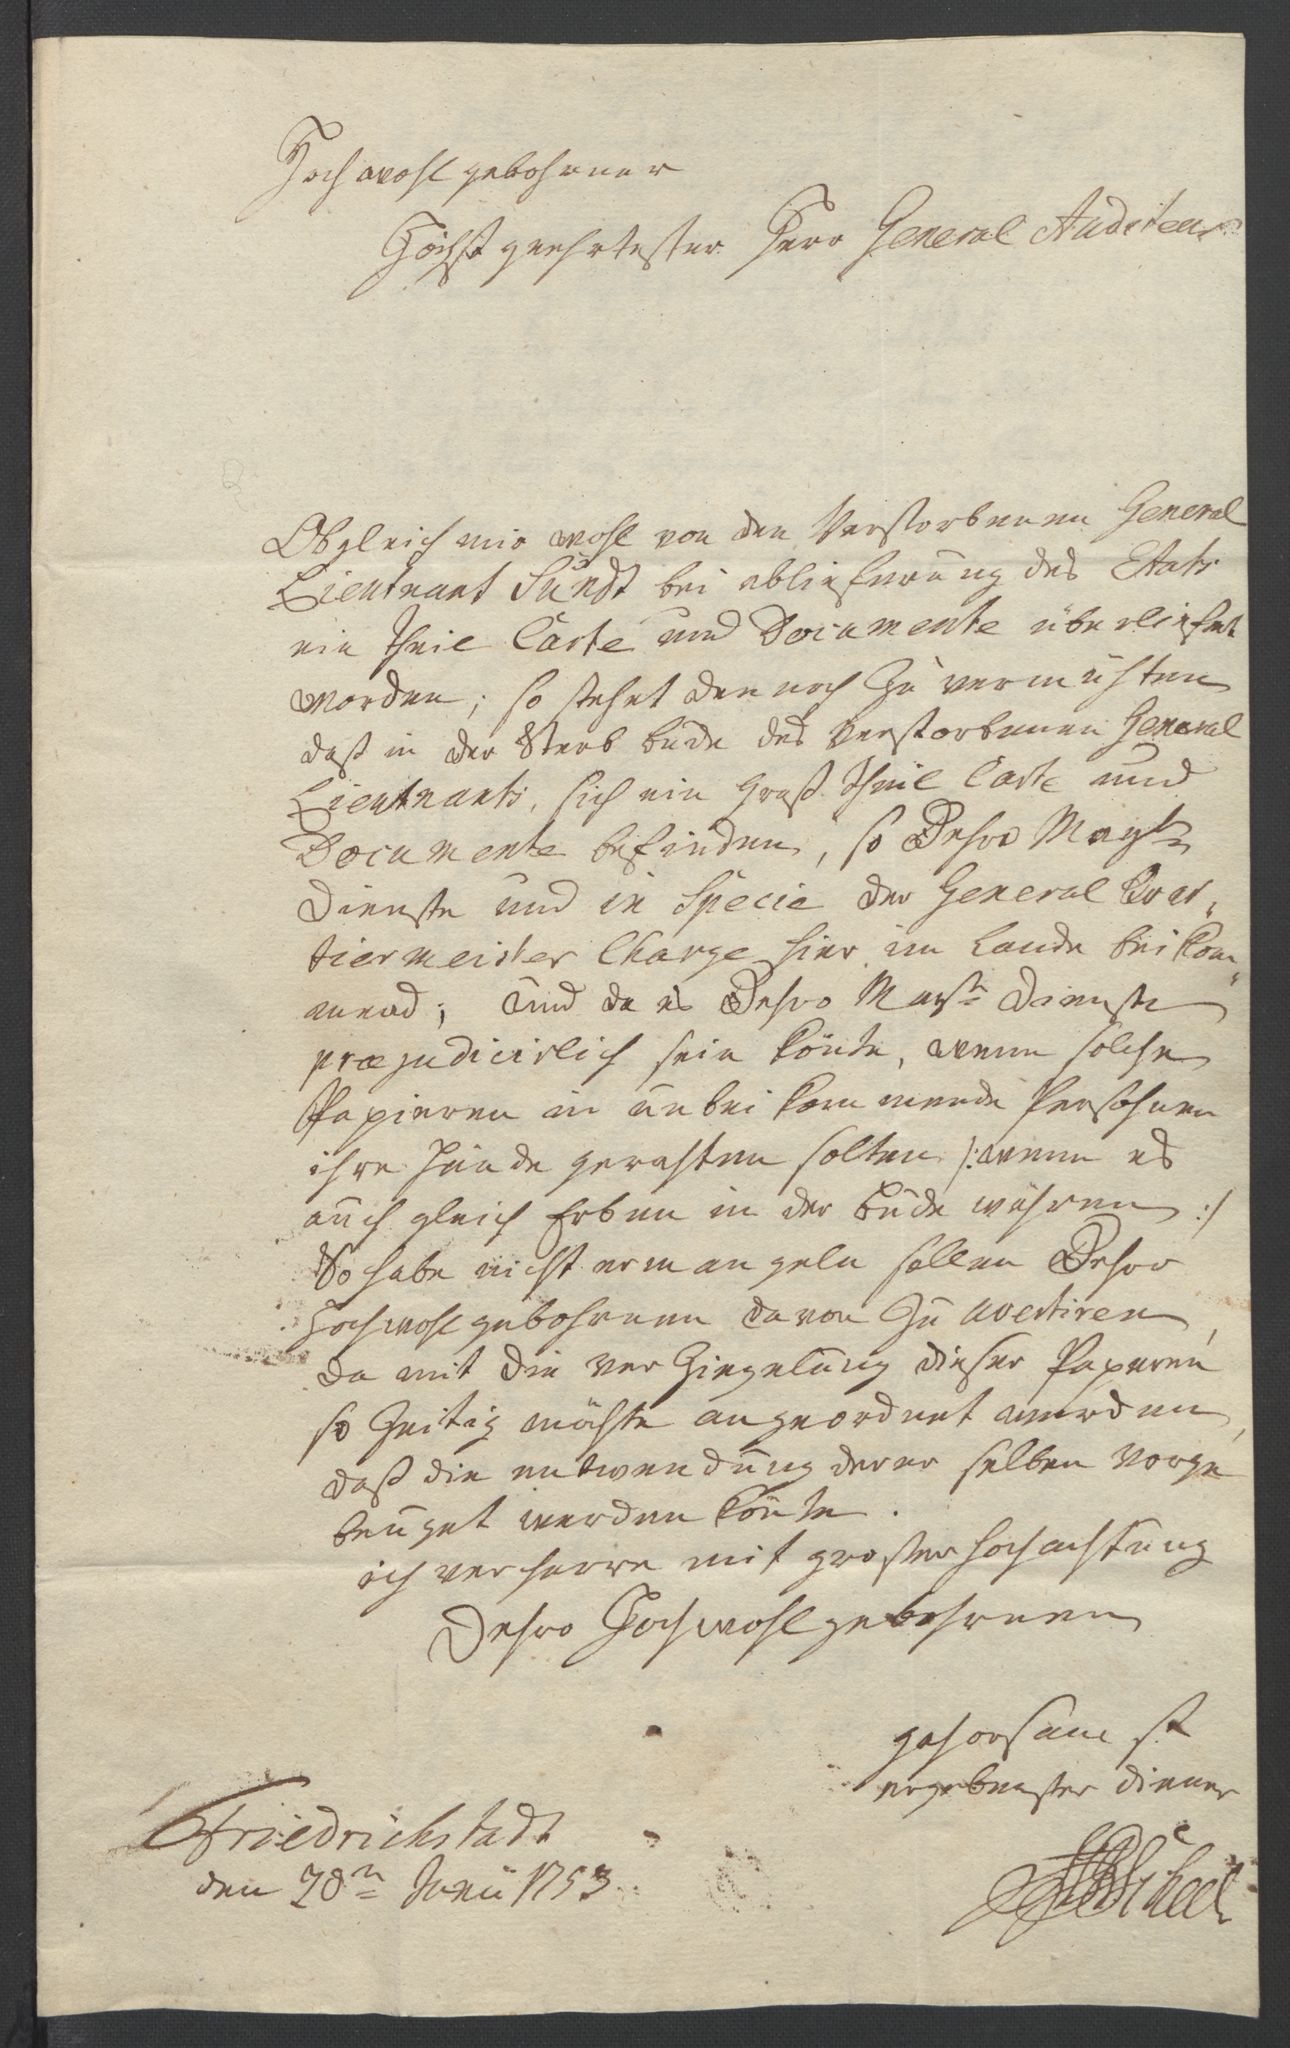 Hochwohlgebohrner
Höchst geehrtester Herr General Auditeur
Obgleich mir wohl von den Verstorbenen General
Lieutnant Sundt bei ablieferung des Etats
ein theil Carte und Documente überliefert
worden; so stehet dennoch zu vermuhten
daß in der Sterb bude des verstorbenen General
Lieutnants, sich ein groß theil Carte und
Documente befinden, so Dehro Mayt
Dienste und in Specie der General Quar,
tiermeister Charge hier im Lande bei kom
mend; und da es Dehro Mayst Dienste
præjudicirlich sein könte, wenn solche
Papieren in unbei kommende Persohnen
ihre Hände gerahten solten /: wenn es
auch gleich Erben in der bude währen :/
So habe nicht ermangeln sollen Dehro
Hochwohlgebohrnen davon zu avertiren,
da mit die ver Ziegelung dieser Paperen
so Zeitig möchte angeordnet werden,
daß die entwendung derer selben vorge
beuget werden könte.
ich verharre mit großer hochachtung
Dehro Hochwohlgebohrnen
gehorsamst
ergebenster diener
Scheel
Friedrichstadt
den 28n Junii 1753.